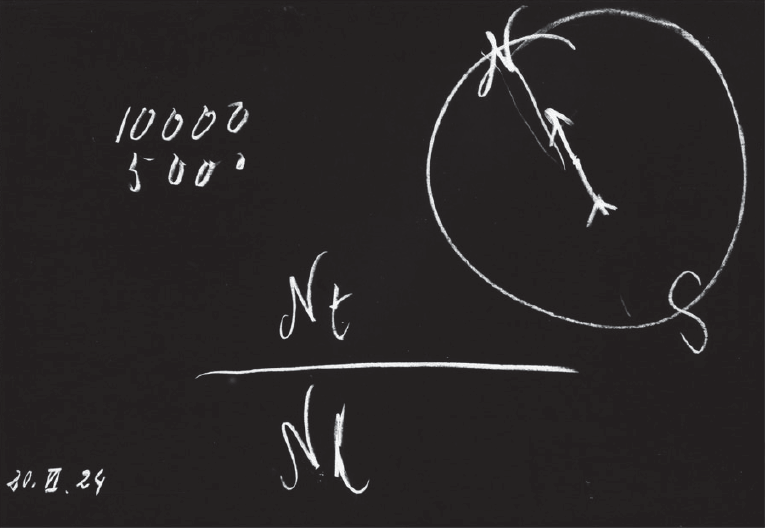 10000
5000
N
S
Nt
Nl
20.VI.24